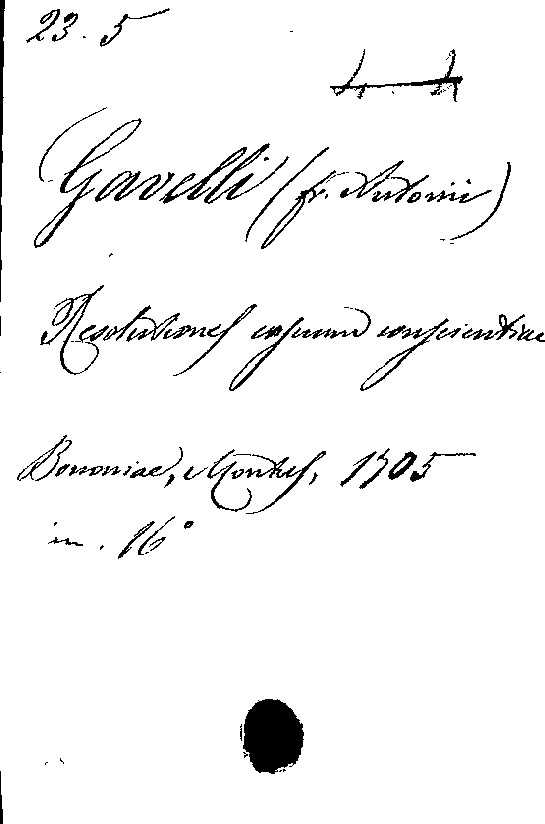 23. 5
4. 4
Gavelli (fr. Antonii)
Resolutiones casuum conscientiae
Bononiae, Montes, 1705
in. 16°